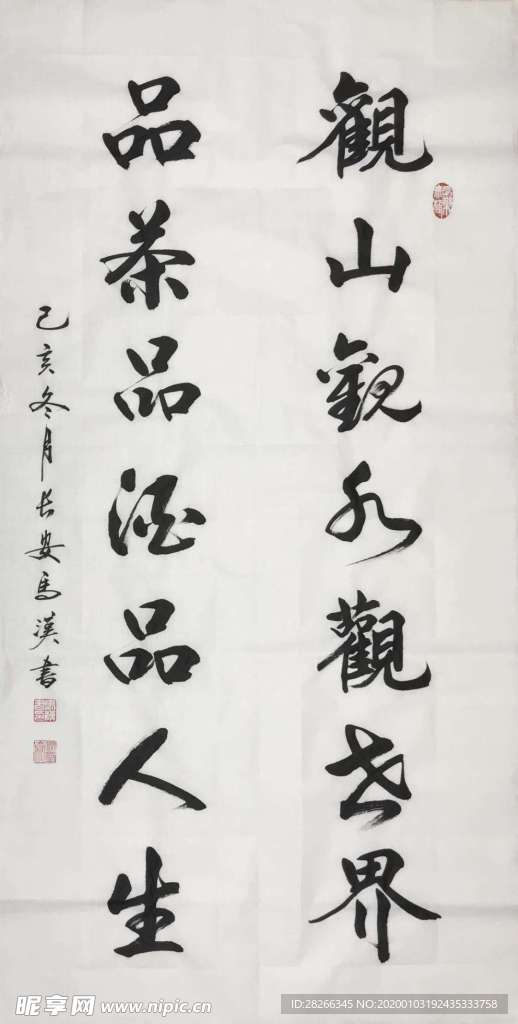 觀山觀水觀世界
品茶品酒品人生
己亥冬月长安馬漢書
昵享网 www.nipic.cn
ID:28266345 NO:20200103192435333758